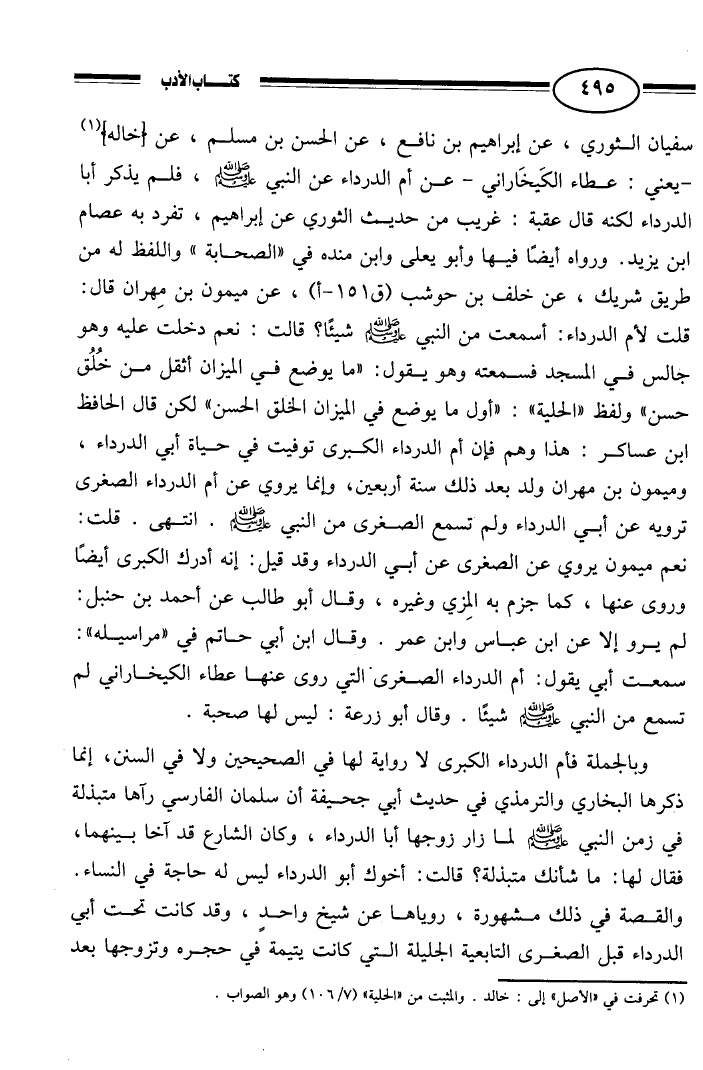 ٤٩٥ كتاب الأدب
سفيان الثوري ، عن إبراهيم بن نافع ، عن الحسن بن مسلم ، عن {خاله}(١)
-يعني : عطاء الكَيخَاراني - عن أم الدرداء عن النبي ﷺ ، فلم يذكر أبا
الدرداء لكنه قال عقبة : غريب من حديث الثوري عن إبراهيم ، تفرد به عصام
ابن يزيد. ورواه أيضًا فيها وأبو يعلى وابن منده في «الصحابة » واللفظ له من
طريق شريك ، عن خلف بن حوشب (ق١٥١-أ) ، عن ميمون بن مِهران قال:
قلت لأم الدرداء: أسمعت من النبي ﷺ شيئًا؟ قالت : نعم دخلت عليه وهو
جالس في المسجد فسمعته وهو يقول: «ما يوضع في الميزان أثقل من خُلُق
حسن» ولفظ «الحلية» : «أول ما يوضع في الميزان الخلق الحسن» لكن قال الحافظ
ابن عساكر : هذا وهم فإن أم الدرداء الكبرى توفيت في حياة أبي الدرداء ،
وميمون بن مهران ولد بعد ذلك سنة أربعين، وإنما يروي عن أم الدرداء الصغرى
ترويه عن أبي الدرداء ولم تسمع الصغرى من النبي ﷺ . انتهى . قلت:
نعم ميمون يروي عن الصغرى عن أبي الدرداء وقد قيل: إنه أدرك الكبرى أيضًا
وروى عنها ، كما جزم به المِزي وغيره ، وقال أبو طالب عن أحمد بن حنبل:
لم يرو إلا عن ابن عباس وابن عمر . وقال ابن أبي حاتم في «مراسيله»:
سمعت أبي يقول: أم الدرداء الصغرى التي روى عنها عطاء الكيخاراني لم
تسمع من النبي ﷺ شيئًا . وقال أبو زرعة : ليس لها صحبة .
وبالجملة فأم الدرداء الكبرى لا رواية لها في الصحيحين ولا في السنن، إنما
ذكرها البخاري والترمذي في حديث أبي جحيفة أن سلمان الفارسي رآها متبذلة
في زمن النبي ﷺ لما زار زوجها أبا الدرداء ، وكان الشارع قد آخا بينهما،
فقال لها: ما شأنك متبذلة؟ قالت: أخوك أبو الدرداء ليس له حاجة في النساء.
والقصة في ذلك مشهورة ، روياها عن شيخ واحدٍ ، وقد كانت تحت أبي
الدرداء قبل الصغرى التابعية الجليلة التي كانت يتيمة في حجره وتزوجها بعد
(١) تحرفت في «الأصل» إلى : خالد . والمثبت من «الحلية» (١٠٦/٧) وهو الصواب .